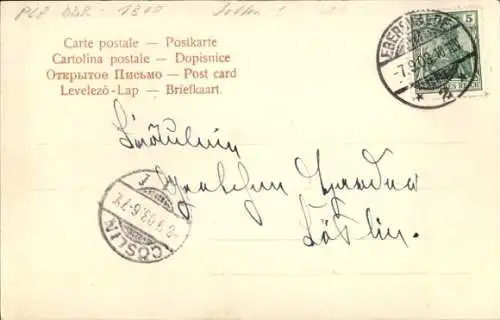 PLZ DDR - 1300
Carte postale — Postkarte
Cartolina postale — Dopisnice
Открытое Письмо — Post card
Levelező-Lap — Briefkaart.
5
EBERSWALDE
-7.9.03.
Fräulein
Gretchen
Cöslin.
CÖSLIN
-8.9.03.6-7V.